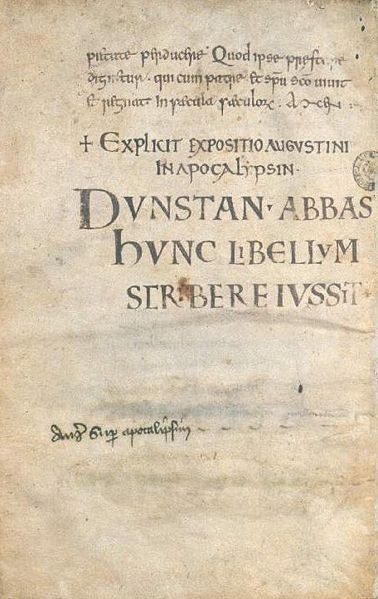 pietate perducere Quod ipse prestare
dignetur · qui cum patre et spu sco uiuit
et regnat In saecula saeculor · Amen ·
+ EXPLICIT EXPOSITIO AUGUSTINI
IN APOCALYPSIN ·
DVNSTAN · ABBAS
hVNC LIBELLVM
SCRIBERE IVSSIT ·
super apocalipsim